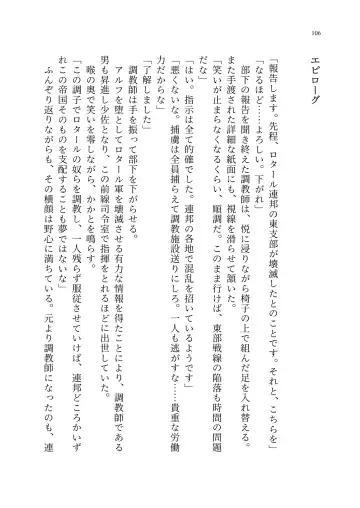 106
エピローグ
「報告します。先程、ロタール連邦の東支部が壊滅したとのことです。それと、こちらを」
「なるほど……よろしい。下がれ」
部下の報告を聞き終えた調教師は、悦に浸りながら椅子の上で組んだ足を入れ替える。
また手渡された詳細な紙面にも、視線を滑らせて頷いた。
「笑いが止まらなくなるくらい、順調だ。このまま行けば、東部戦線の陥落も時間の問題
だな」
「はい。指示は全て的確でした。連邦の各地で混乱を招いているようです」
「悪くないな。捕虜は全員捕らえて調教施設送りにしろ。一人も逃がすな……貴重な労働
力だからな」
「了解しました」
調教師は手を振って部下を下がらせる。
アルフを堕としてロタール軍を壊滅させる有力な情報を得たことにより、調教師である
男も昇進し少佐となり、この前線司令室で指揮をとれるほどに出世していた。
喉の奥で笑いを零しながら、かかとを鳴らす。
「この調子でロタールの奴らを調教し、一人残らず服従させていけば、連邦どころかいず
れこの帝国そのものを支配することも夢ではないな」
ふんぞり返りながらも、その横顔は野心に満ちている。元より調教師になったのも、連